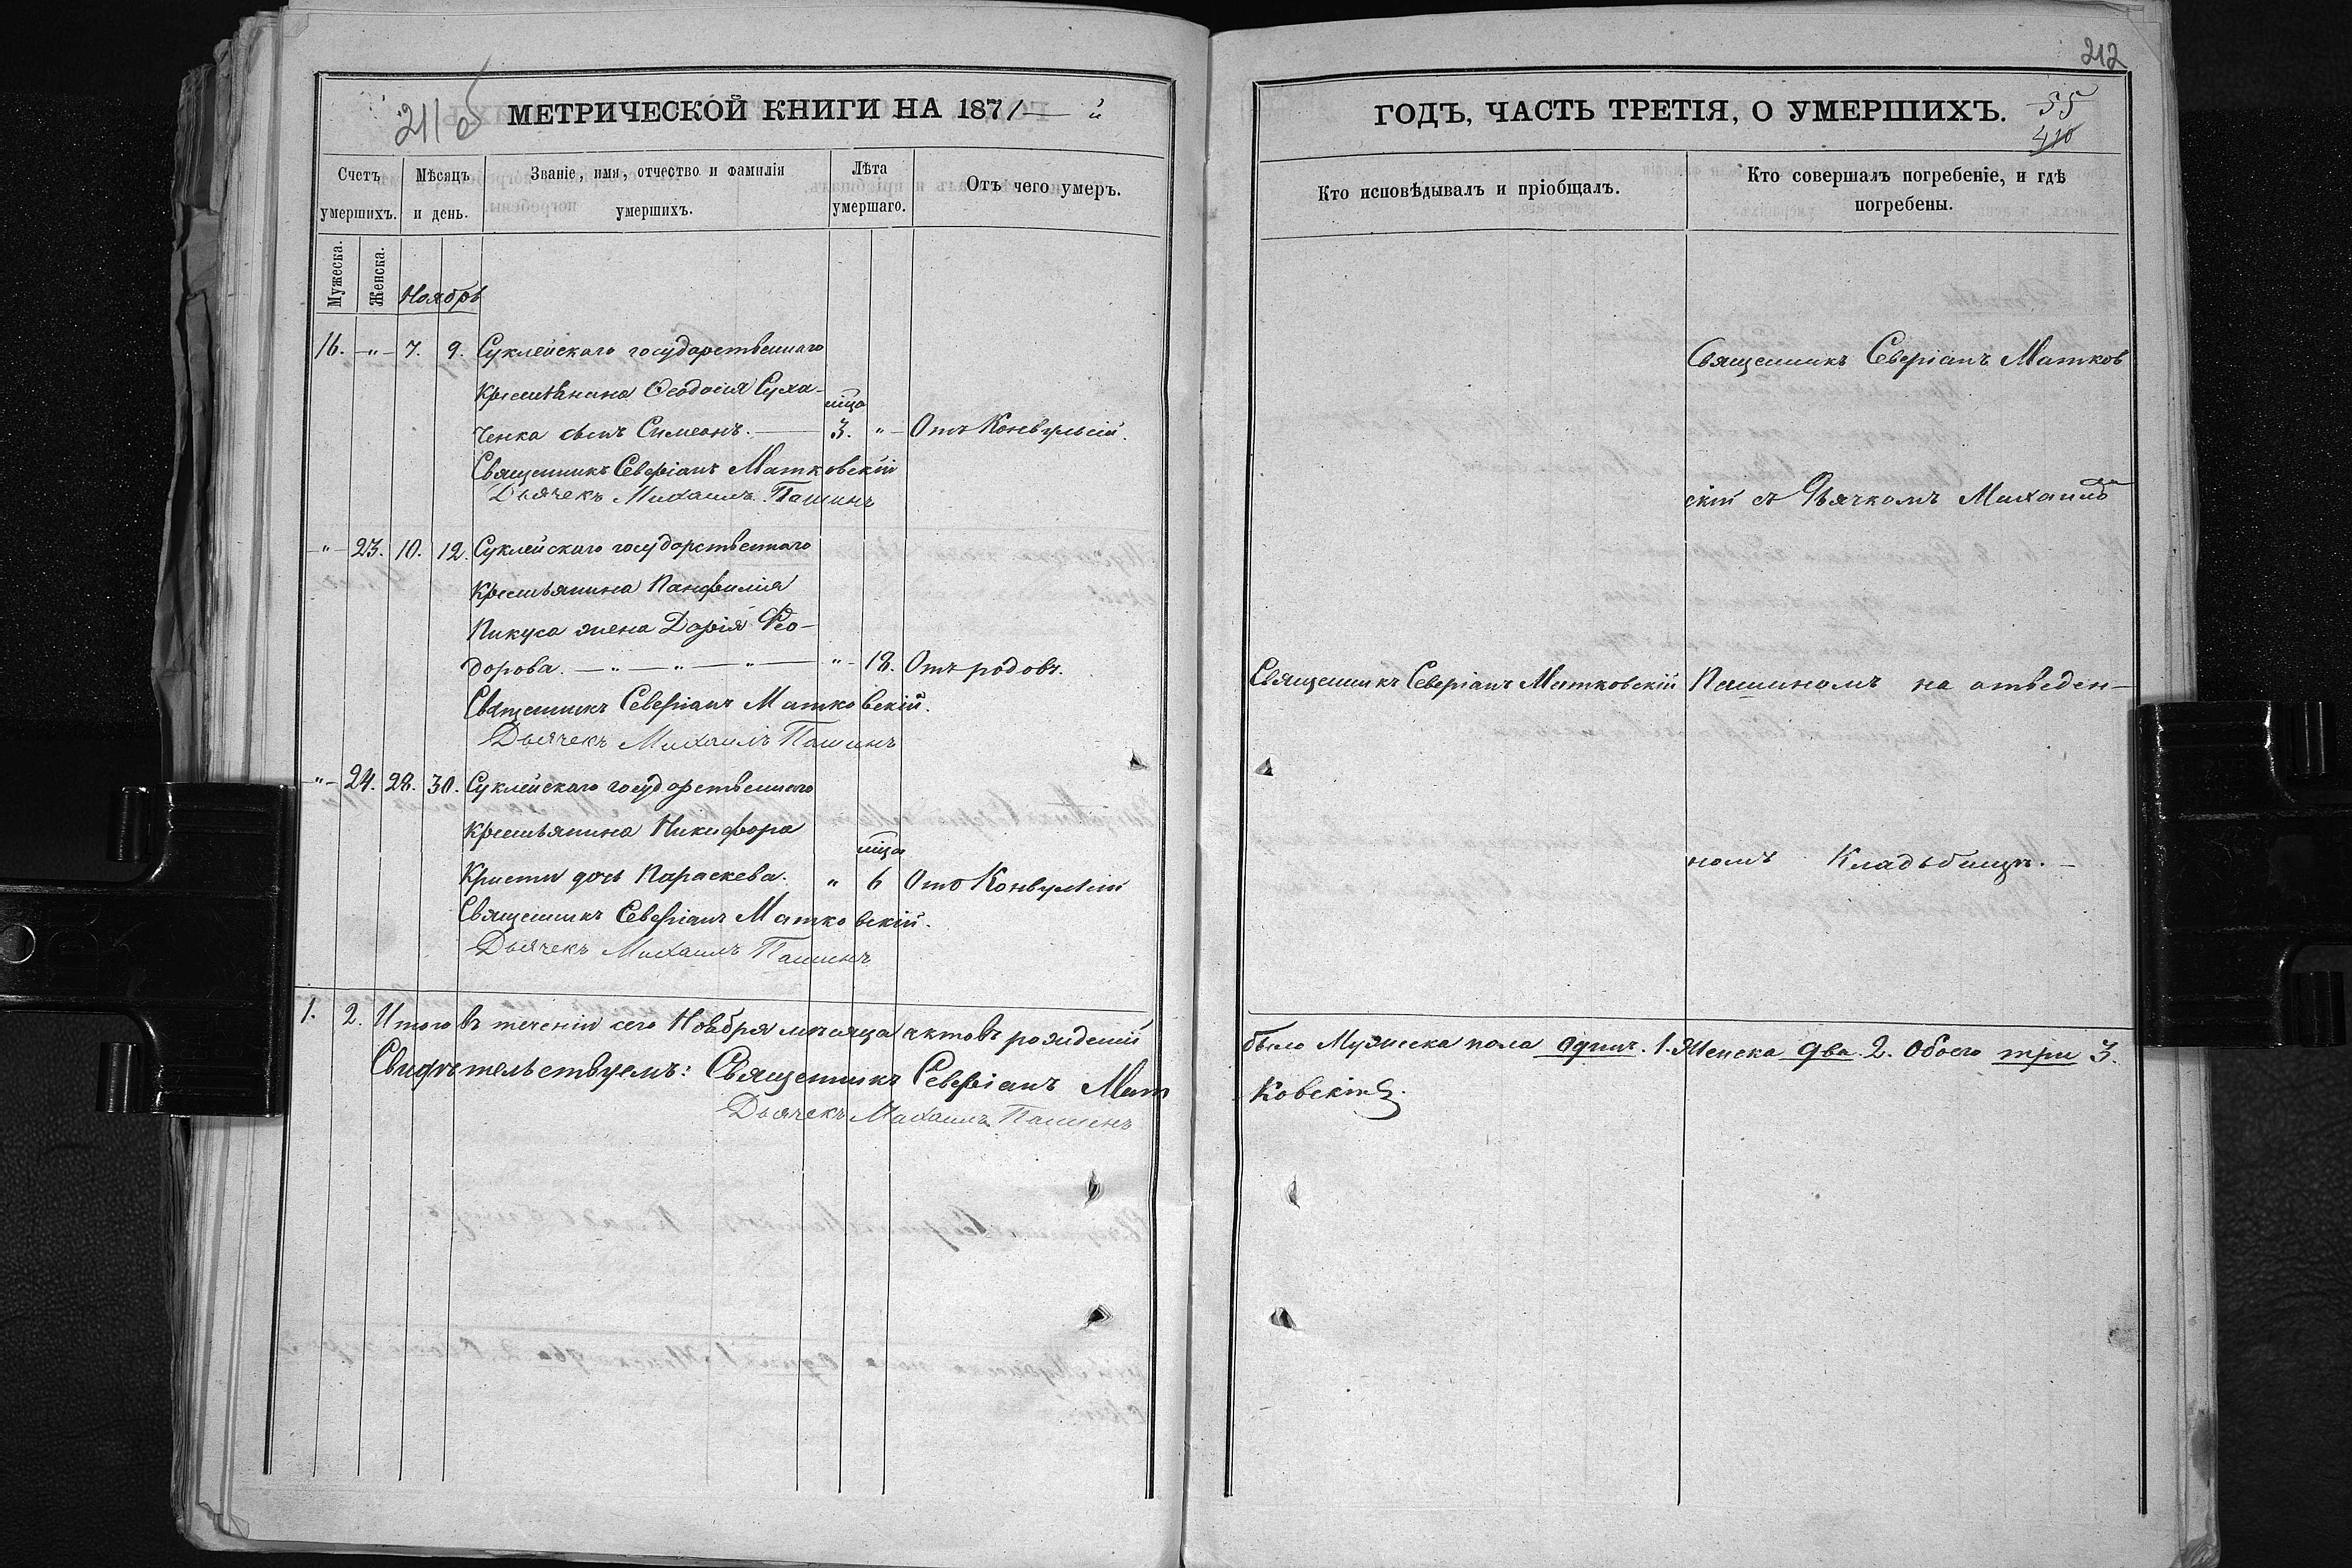 211б
МЕТРИЧЕСКОЙ КНИГИ НА 1871 — "
Счетъ умершихъ.
Мѣсяцъ и день.
Званіе, имя, отчество и фамилія умершихъ.
Лѣта умершаго.
Отъ чего умеръ.
Мужеска.
Женска.
Ноябрь
16. -"- 7. 9. Суклейскаго государственнаго
Крестьянина Ѳеодосія Суха-
мца
ченка сынъ Симеонъ. — 3. " Отъ Конвульсій.
Священникъ Северіанъ Матковскій
Дьячекъ Михаилъ Пашинъ
-"- 23. 10. 12. Суклейскаго государственнаго
Крестьянина Панфилія
Пикуса жена Дарія Ѳео-
дорова. — " — " — " — " - 18. Отъ родовъ.
Священникъ Северіанъ Матковскій.
Дьячекъ Михаилъ Пашинъ
-"- 24. 28. 30. Суклейскаго государственнаго
Крестьянина Никифора
мца
Кристи дочь Параскева. " 6 Отъ Конвульсій
Священникъ Северіанъ Матковскій.
Дьячекъ Михаилъ Пашинъ
1. 2. Итого въ теченіи сего Ноября мѣсяца актовъ рождений
Свидѣтельствуемъ: Священникъ Северіанъ Мат
Дьячекъ Михаилъ Пашинъ
212
ГОДЪ, ЧАСТЬ ТРЕТІЯ, О УМЕРШИХЪ.
55
410
Кто исповѣдывалъ и пріобщалъ.
Кто совершалъ погребеніе, и гдѣ
погребены.
Священникъ Северіанъ Матков
скій съ Дьячкомъ Михаило
Священникъ Северіанъ Матковскій
Пашиномъ на отведен-
номъ Кладбищѣ. -
было Мужеска пола одинъ. 1. Женска два. 2. Обоего три 3.
ковскій.